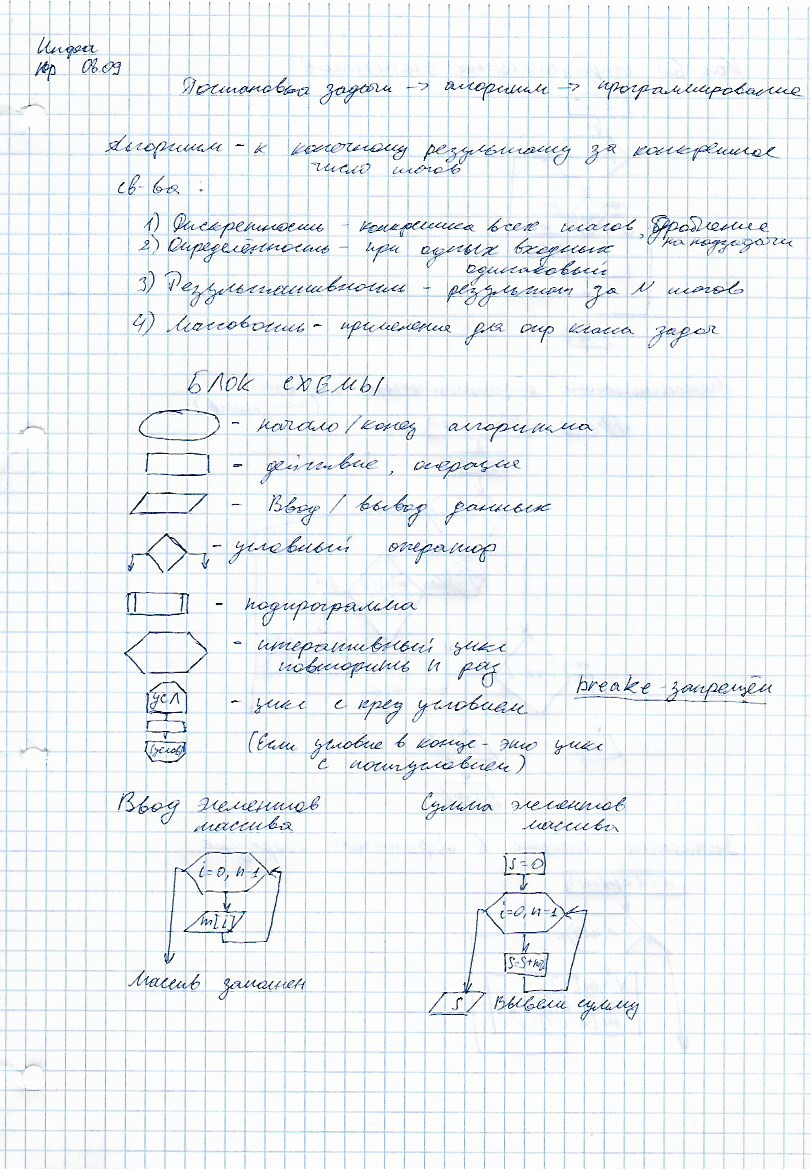 Инфа
пр 08.09
Постановка задачи -> алгоритм -> программирование
Алгоритм - к конечному результату за конкретное
число шагов
св-ва :
1) Дискретность - конкретика всех шагов, дробление
на подзадачи
2) Определённость - при одних входных
одинаковый
3) Результативность - результат за N шагов
4) Массовость - применение для опр класса задач
БЛОК СХЕМЫ
- начало / конец алгоритма
- действие, операция
- Ввод / вывод данных
- условный оператор
- подпрограмма
- итеративный цикл
повторить n раз
breake - запрещён
усл
- цикл с пред условием
услов
(Если условие в конце - это цикл
с постусловием)
Ввод элементов
массива
i=0, n-1
m[i]
Массив заполнен
Сумма элементов
массива
S=0
i=0, n-1
S=S+m[i]
S
Вывели сумму